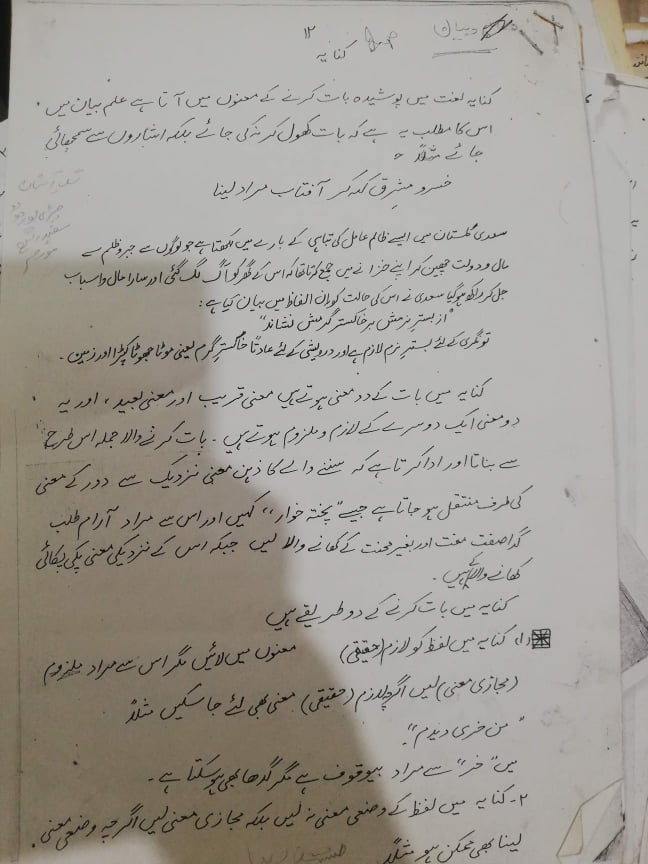 دبیان
۱۲
کنایہ
کنایہ لغت میں پوشیدہ بات کرنے کے معنوں میں آتا ہے علم بیان میں
اس کا مطلب یہ ہے کہ بات کھول کر نہ کی جائے بلکہ اشاروں سے سمجھائی
جائے مثلاً
خسرو مشرق کہہ کر آفتاب مراد لینا
سعدی گلستان میں ایسے ظالم عامل کی تباہی کے بارے میں لکھتا ہے جو لوگوں سے جبر و ظلم سے
مال و دولت چھین کر اپنے خزانے میں جمع کرتا تھا کہ اس کے گھر کو آگ لگ گئی اور سارا مال و اسباب
جل کر راکھ ہو گیا سعدی نے اس کی حالت کو ان الفاظ میں بیان کیا ہے :
"از بستر نرمش بر خاکستر گرمش نشاند"
تونگری کے لئے بستر نرم لازم ہے اور درویشی کے لئے عادتاً خاکستر گرم یعنی موٹا جھوٹا کپڑا اور زمین ۔
کنایہ میں بات کے دو معنی ہوتے ہیں معنی قریب اور معنی بعید ، اور یہ
دو معنی ایک دوسرے کے لازم و ملزوم ہوتے ہیں ۔ بات کرنے والا جملہ اس طرح
سے بناتا اور ادا کرتا ہے کہ سننے والے کا ذہن معنی نزدیک سے دور کے معنی
کی طرف منتقل ہو جاتا ہے جیسے "پختہ خوار" کہیں اور اس سے مراد آرام طلب
گدا صفت مفت اور بغیر محنت کے کھانے والا لیں جبکہ اس کے نزدیکی معنی پکی پکائی
کھانے والا کے ہیں ۔
کنایہ میں بات کرنے کے دو طریقے ہیں
(۱) کنایہ میں لفظ کو لازم (حقیقی) معنوں میں لائیں مگر اس سے مراد ملزوم
(مجازی معنی) لیں اگرچہ لازم (حقیقی) معنی بھی لئے جا سکیں مثلاً
"من خری دیدم"
میں "خر" سے مراد بیوقوف ہے مگر گدھا بھی ہو سکتا ہے ۔
۲ ۔ کنایہ میں لفظ کے وضعی معنی نہ لیں بلکہ مجازی معنی لیں اگرچہ وضعی معنی
لینا بھی ممکن ہو مثلاً